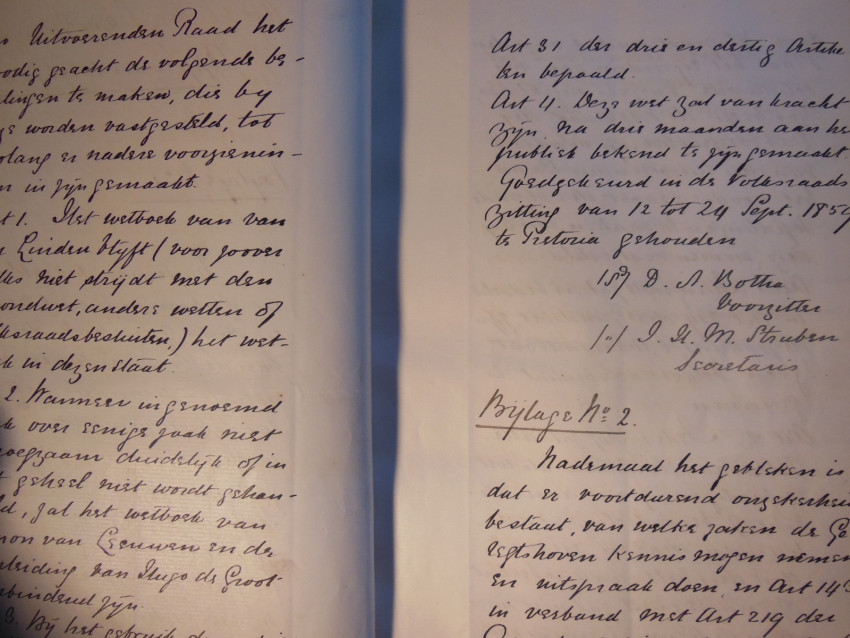 Uitvoerenden Raad het
odig geacht de volgende be-
lingen te maken, die by
worden vastgesteld, tot
olang er nadere voorzienin-
n in zijn gemaakt.
t 1. Het wetboek van van
Linden blyft (voor zoover
lks niet strijdt met den
ondwet, andere wetten of
ksraadsbesluiten,) het wet-
k in dezen Staat.
2. Wanneer in genoemd
k over eenige zaak niet
oegzaam duidelijk of in
t geheel niet wordt gehan-
ld, zal het wetboek van
mon van Leeuwen en de
leiding van Hugo de Groot
bindend zijn.
3. Bij het gebruik
Art 31 der drie en dertig Artike
len bepaald.
Art 4. Deze wet zal van kracht
zijn na drie maanden aan he
publiek bekend te zijn gemaakt.
Goedgekeurd in de Volksraads
zitting van 12 tot 24 Sept. 1859
te Pretoria gehouden
D. A. Botha
Voorzitter
J. H. M. Struben
Secretaris
Bijlage No 2.
Nademaal het gebleken is
dat er voortdurend onzekerhei
bestaat, van welke zaken de Ge
regtshoven kennis mogen nemen
en uitspraak doen, en Art 143
in verband met Art 219 der